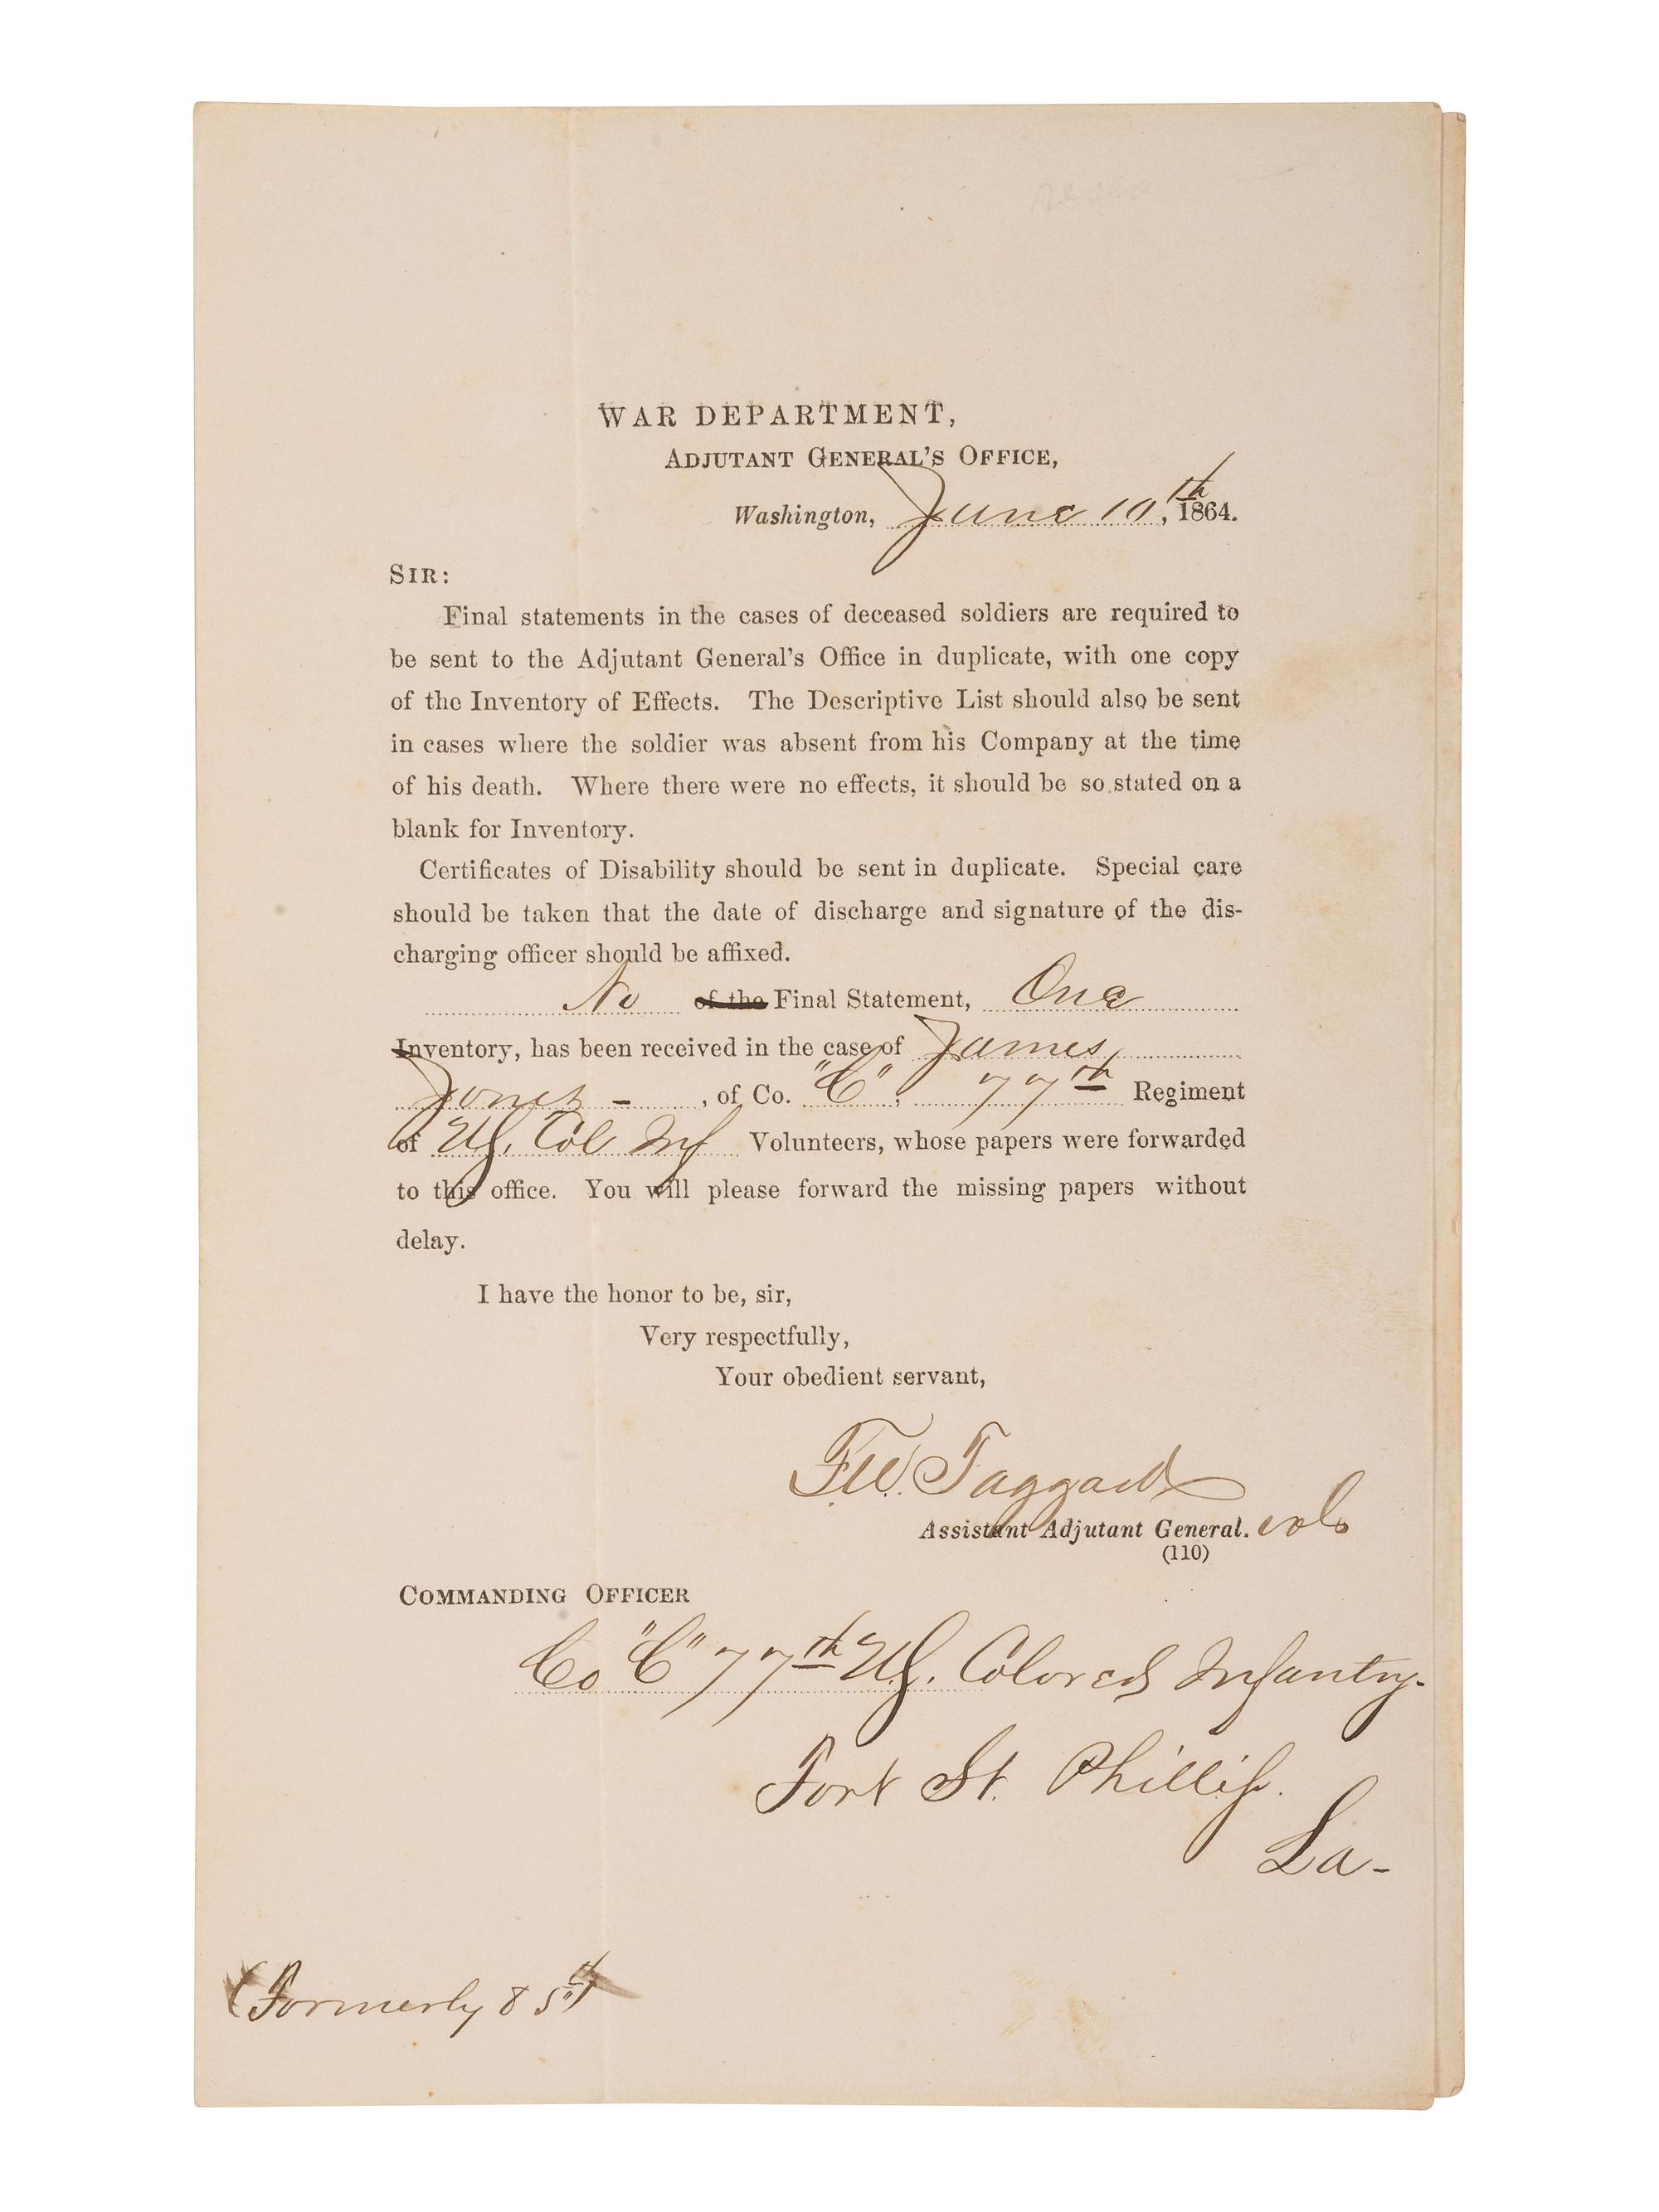 WAR DEPARTMENT,
ADJUTANT GENERAL'S OFFICE,
Washington, June 10th, 1864.
SIR:
Final statements in the cases of deceased soldiers are required to
be sent to the Adjutant General's Office in duplicate, with one copy
of the Inventory of Effects. The Descriptive List should also be sent
in cases where the soldier was absent from his Company at the time
of his death. Where there were no effects, it should be so stated on a
blank for Inventory.
Certificates of Disability should be sent in duplicate. Special care
should be taken that the date of discharge and signature of the dis-
charging officer should be affixed.
No of the Final Statement, One
Inventory, has been received in the case of James
Jones - , of Co. "C", 77th Regiment
of U.S. Col Inf Volunteers, whose papers were forwarded
to this office. You will please forward the missing papers without
delay.
I have the honor to be, sir,
Very respectfully,
Your obedient servant,
F.W. Taggard
Assistant Adjutant General. vols
(110)
COMMANDING OFFICER
Co "C" 77th U.S. Colored Infantry.
Fort St. Phillip.
La-
(Formerly 85th)